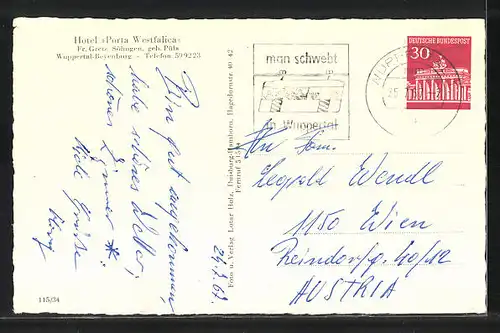 Hotel »Porta Westfalica«
Fr. Grete Söhngen, geb. Püls
Wuppertal-Beyenburg – Telefon 599223
Bin gut angekommen,
habe schönes Wetter,
schönes Zimmer *.
Viele Grüße
24.7.67
Foto u. Verlag Lotar Holz, Duisburg-Hamborn, Hagedornstr. 40-42
115/34
man schwebt
in Wuppertal
30
DEUTSCHE BUNDESPOST
An Fam.
Leopold Wendl
1150 Wien
Reindorfg. 40/12
AUSTRIA